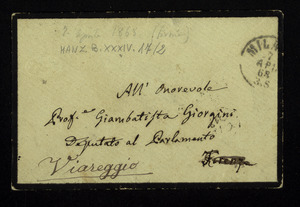 2. aprile 1868
MANZ. B. XXXIV. 17/2
MILA
AP
68
All' Onorevole
Prof.re Giambatista Giorgini
Deputato al Parlamento
Firenze
Viareggio